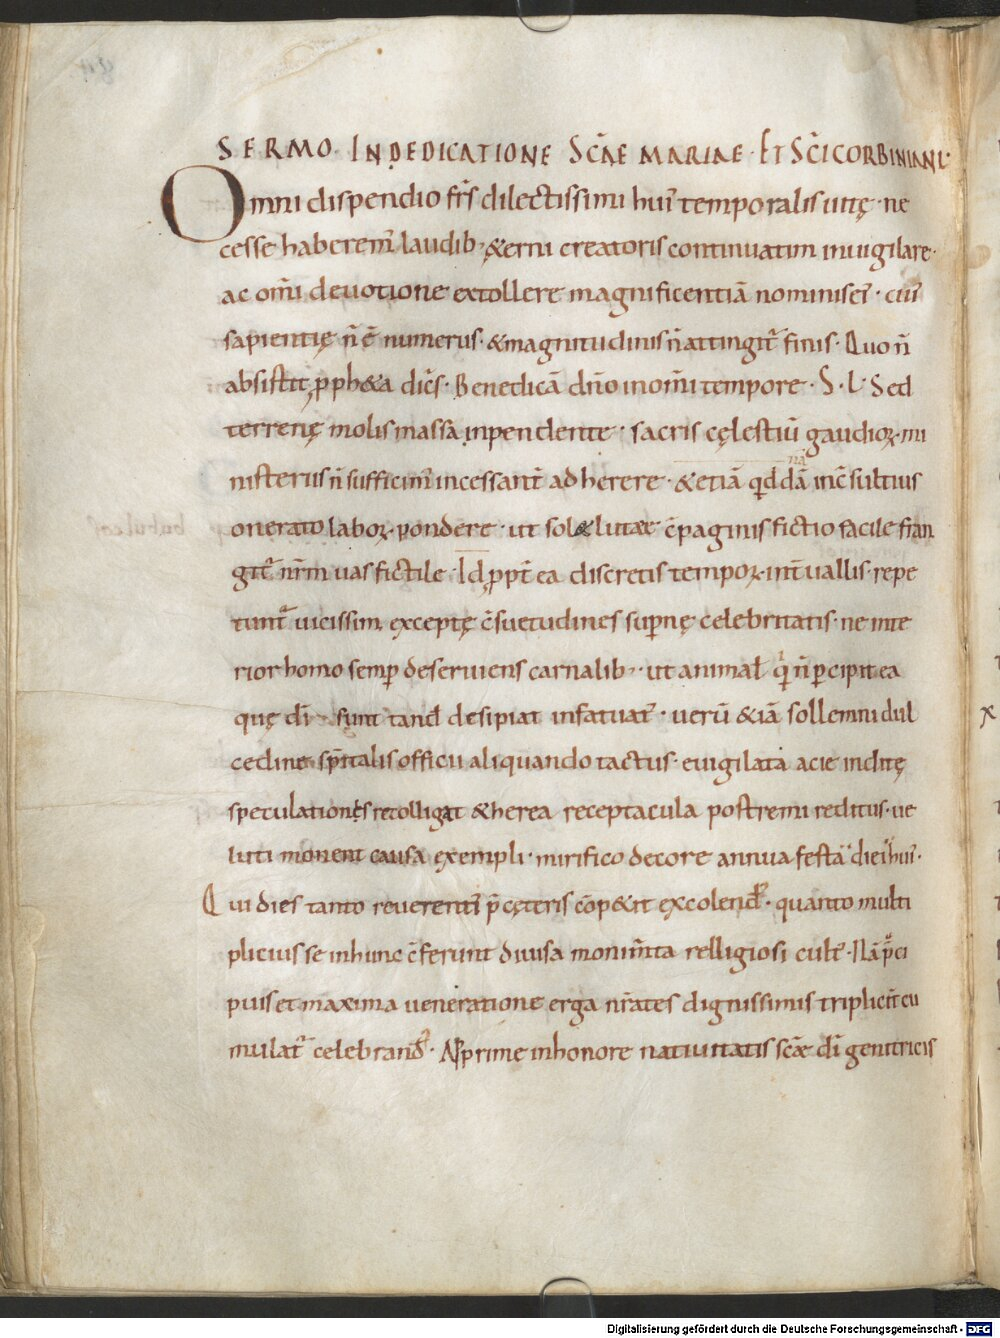 SERMO IN DEDICATIONE SCĀE MARIAE · ET SC̄I CORBINIANI·
Omni dispendio fr̄s dilectissimi hui᷒ temporalis uitę · ne
cesse haberem᷒ laudib; &erni creatoris continuatim inuigilare·
ac om̄i deuotione extollere magnificentiā nominis ei᷒ · cui᷒
sapientię n̄ ē numerus · & magnitudinis n̄ attingit᷒ finis · Quo n̄
absistit ꝓph&a dic̄s · Benedicā dn̄o in om̄i tempore · S · L · Sed
terrenę molis massa inpendente · sacris cęlestiū gaudioꝝ · mi
nisteriis n̄ sufficim᷒ incessant̄ adherere · & etiā
onerato laboꝝ · pondere · ut sol& lutae c̄paginis fictio facile fran
git᷒ nr̄m uas fictile · Id ꝓpt̄ ea discretis tempoꝝ · int̄uallis · repe
tunt᷒ uicissim exceptę c̄suetudines supernę celebritatis · ne inte
rior homo semꝑ deseruiens carnalib; · ut animal̄ qi n̄ ꝑcipit ea
quę dī sunt tand̄ desipiat infatuat᷒ · uerū &iā sollemni dul
cedine sp̄italis officii aliquando tactus · euigilata acie inclitę
speculationis recolligat &herea receptacula postremi reditus · ue
luti monent causa exempli · mirifico decore annua festa diei hui᷒ ·
Qui dies tanto reuerenti᷒ p̄ cęteris c̄p&it excolend᷒ · quanto multi
plicius se in hunc c̄ferunt diuisa monim̄ta relligiosi cult᷒ · Nā p̄ci
puis et maxima ueneratione erga nr̄ates dignissimis triplicit̄ cu
mulat᷒ celebrand᷒ · Apprime in honore natiuitatis sc̄ae dī genitricis
Digitalisierung gefördert durch die Deutsche Forschungsgemeinschaft - DFG